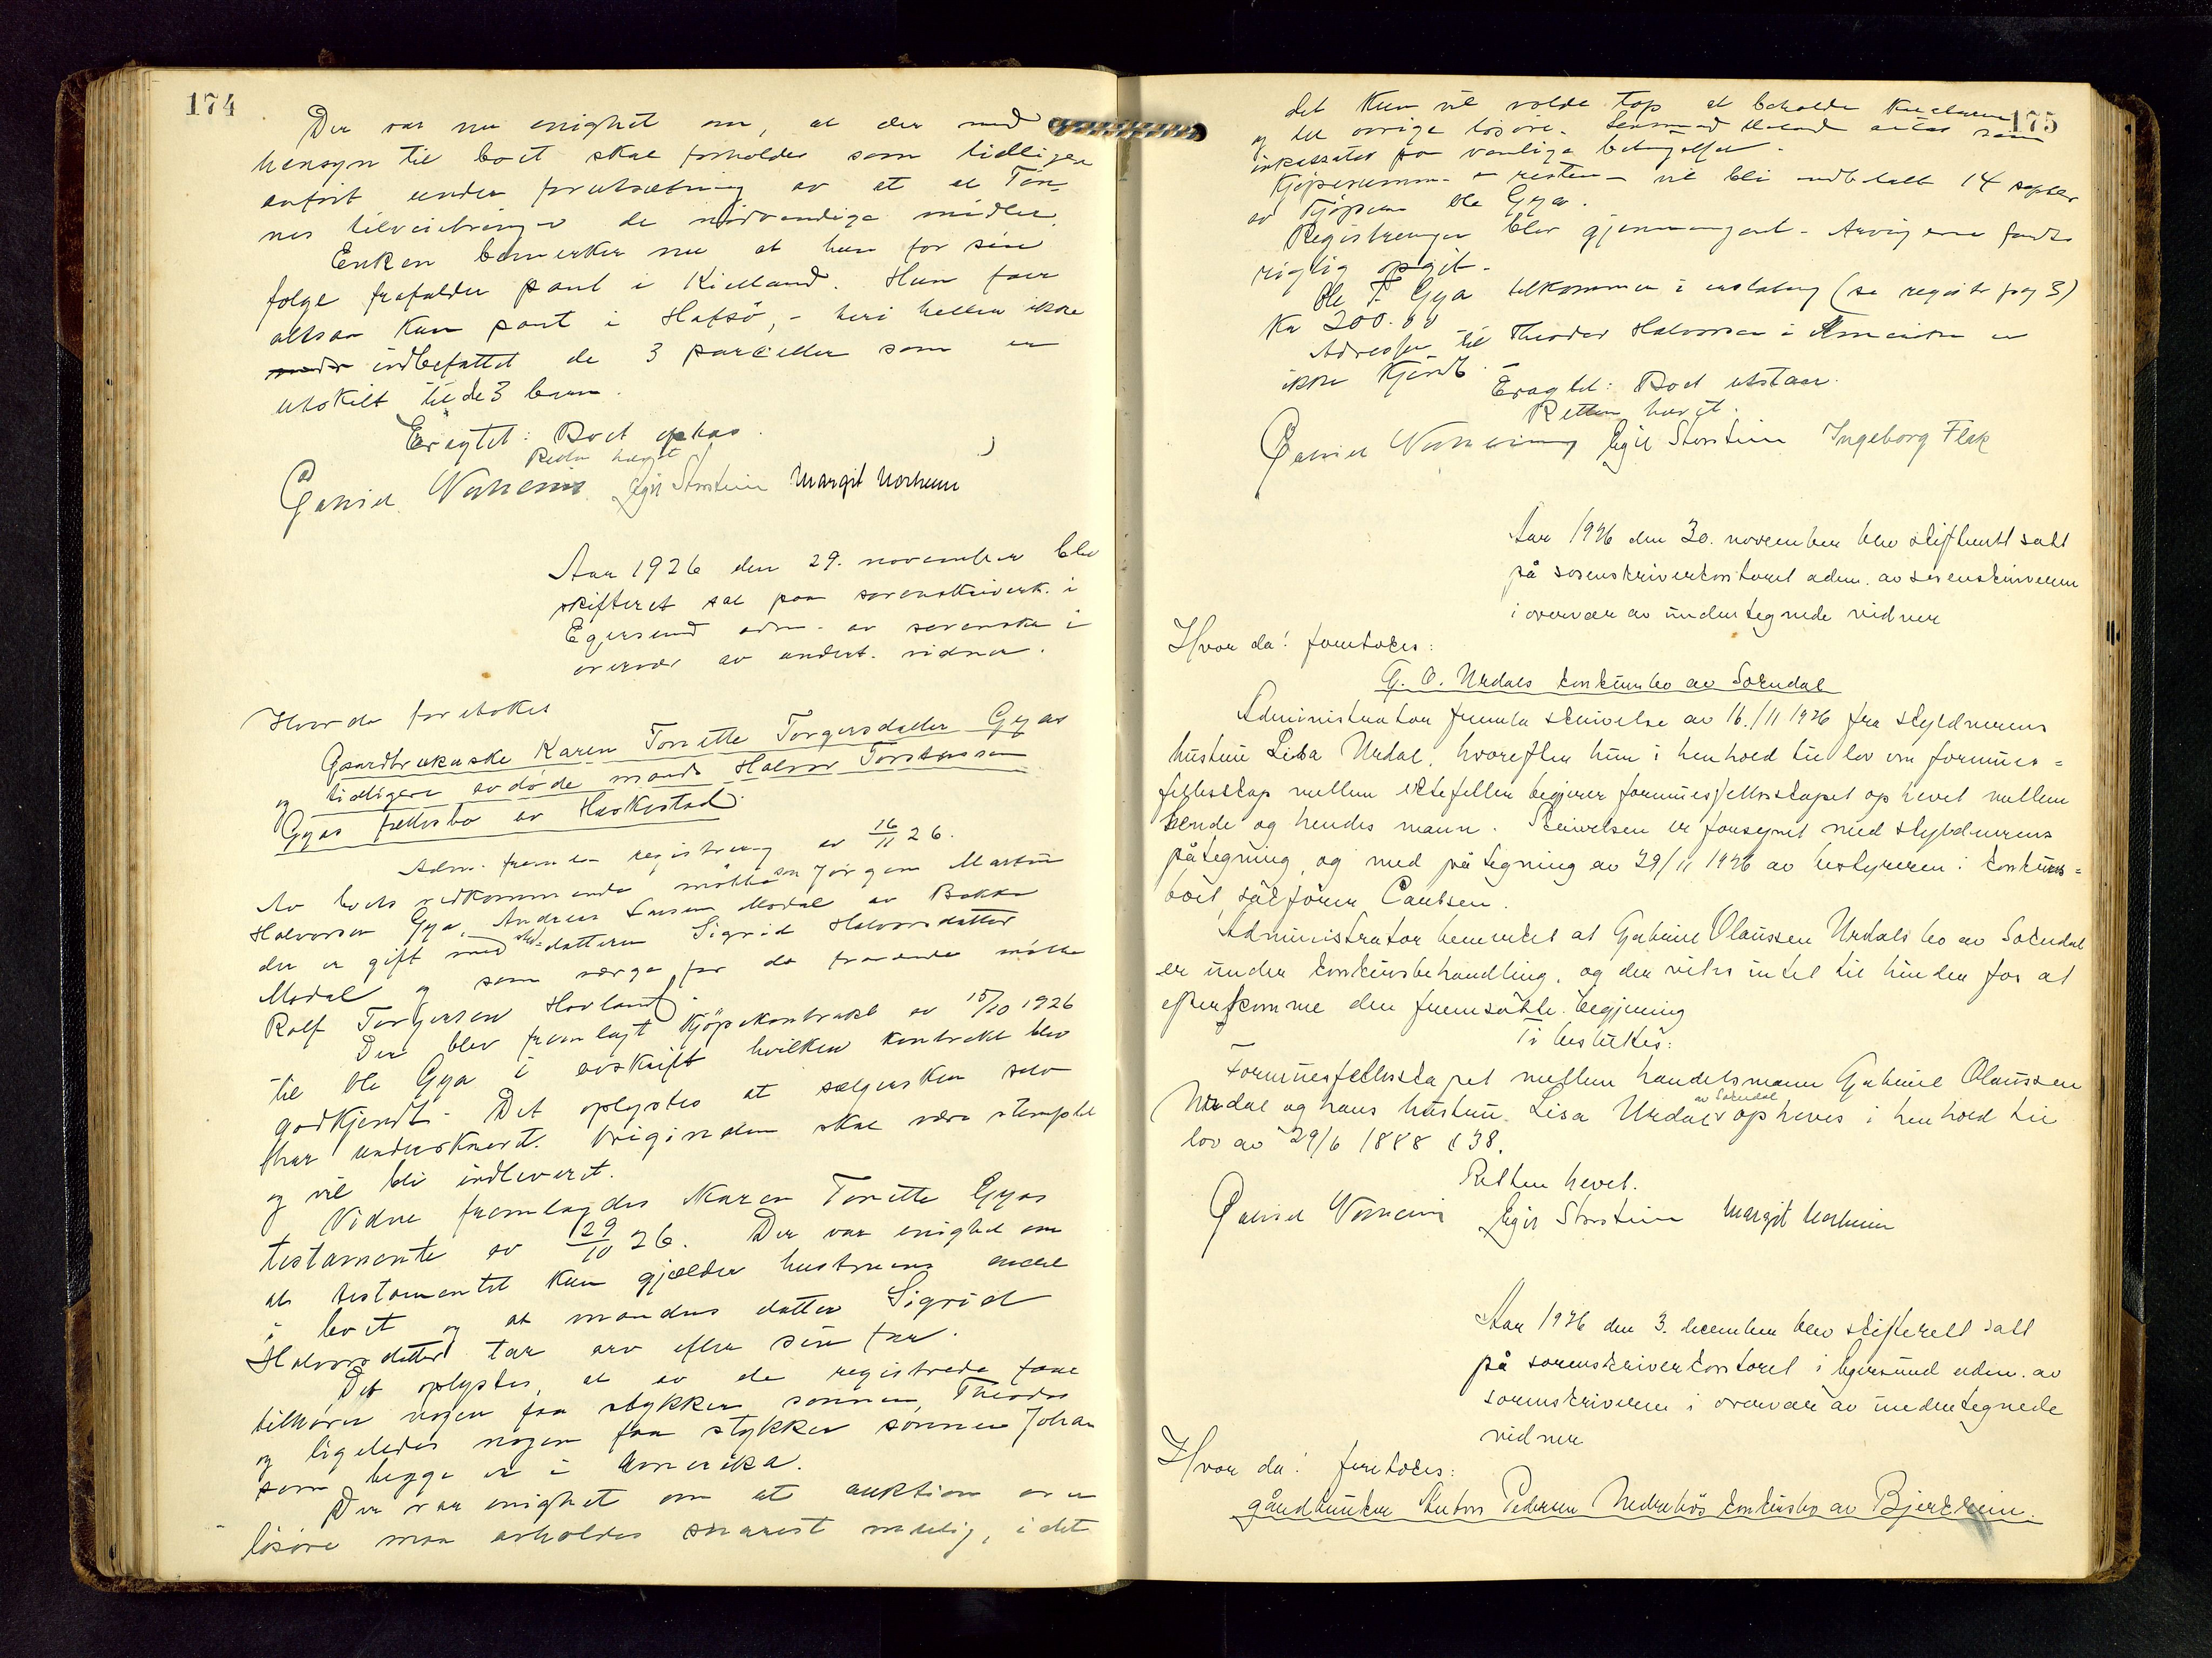 174
Der var nu enighet om, at der med
hensyn til boet skal forholdes som tidligere
anført under forutsætning av at al Tøn-
nes tilveiebringer de nødvendige midler.
Enken bemerker nu at hun for sin
følge frafalder pant i Kielland. Hun faar
altsaa kun pant i Hafsö, - heri heller ikke
indbefattet de 3 parceller som er
utskilt til de 3 barn.
Eragtet: Boet opta&s.
Retten hævet
Gabriel Egil Storstein Margit Norheim
Aar 1926 den 29. november blev
skifteret sat paa sorenskriverk. i
Egersund adm. av sorenskr. i
overvær av undert. vidner.
Hvorda foretokes
Gaardbrukerske Karen Tonette Torgersdatter Gyas
og tidligere avdöde mands Halvor Torstensen
Gyas fællesbo av Heskestad.
Adm. fremla registrering av 16/11 26.
Av boets vedkommende mötte søn Jörgen Martin
Halvorsen Gya, Andreas Larsen Modal av Bakke
der er gift med sted-datteren Sigrid Halvorsdatter
Modal og som værge for de fraværende mötte
Rolf Torgersen Hovland.
Der blev fremlagt kjöpekontrakt av 15/10 1926
til Ole Gya i avskrift hvilken kontrakt blev
godkjendt. Det oplystes at sælgersken selv
har underskrevet. Originalen skal være stemplet
og vil bli indleveret.
Vidre fremlagdes Karen Tonette Gyas
testamente av 29/10 26. Der var enighet om
at testamentet kun gjælder hustruens andel
i boet og at mandens datter Sigrid
Halvorsdatter tar arv efter sin far.
Det oplystes, at av de registrerte
tilhører nogen faa stykker sönnen Theodor
og ligeledes nogen faa stykker sönnen Johan
som begge er i Amerika.
Der var enighet om at auktion over
lösöre maa avholdes snarest mulig, idet
175
det kun vil volde tap at beholde
og det övrige lösöre. som
inkassator paa vanlige betingelser.
Kjöpesummen - resten - vil bli indbetalt 14
av kjöperen Ole Gya.
Registreringen blev gjennemgaat. Arvingerne fandt
rigtig opgit.
Ole T. Gya tilkommer i erstatning (se registr. pag 3)
Kr 200.00
Adressen til Theodor Halvorsen i Amerika er
ikke kjendt.
Eragtet: Boet utstaar.
Retten hævet.
Gabriel Egil Storstein Ingeborg Flak
Aar 1926 den 30. november blev skifterett satt
på sorenskriverkontoret adm. av sorenskriveren
i overvær av undertegnede vidner
Hvor da! foretokes:
G. O. Urdals konkursbo av Sokndal
Administrator fremla skrivelse av 16./11 1926 fra skyldnerens
hustru Lisa Urdal, hvorefter hun i henhold til lov om formues=
fellesskap mellem ektefeller begjærer formuesfellesskapet ophevet mellem
sende og hendes mann. Skrivelsen er forsynet med skyldnerens
påtegning, og med påtegning av 29/11 1926 av bestyreren i konkurs=
boet, sakförer Carlsen.
Administrator bemerket at Gabriel Olaussen Urdals bo av Sokndal
er under konkursbehandling, og der vites intet til hinder for at
efterkomme den fremsatte begjæring
Ti besluttes:
Formuesfellesskapet mellem handelsmann Gabriel Olaussen
Urdal og hans hustru Lisa Urdal av Sokndal opheves i henhold til
lov av 29/6 1888 § 38.
Retten hevet.
Gabriel Egil Storstein Margit Norheim
Aar 1926 den 3. december blev skifterett satt
på sorenskriverkontoret i Egersund adm. av
sorenskriveren i overvær av undertegnede
vidner
Hvor da! foretokes:
gårdbruker Anton Pedersen Nedrebös konkursbo av Bjerkreim.